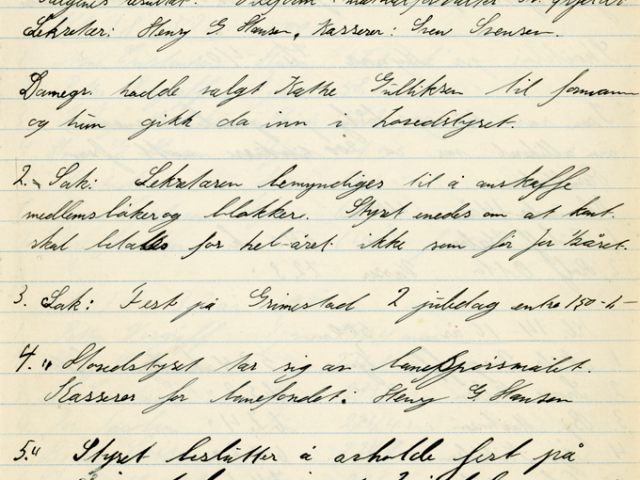 resultat.
Sekretær: Henry G Hansen, Kasserer: Sven Svensen.
Damegr. hadde valgt Kathe Gulliksen til formann
og hun gikk da inn i hovedstyret.
2. Sak: Sekretæren bemyndiges til å anskaffe
medlemsbøker og blokker. Styret enedes om at kont.
skal betales for hel-året ikke som før for ½ året.
3. Sak: Fest på Grimestad 2 juledag entre 1,50
4. " Hovedstyret tar sig av banespørsmålet.
Kasserer for banefondet: Henry G. Hansen
5. " Styret beslutter å avholde fest på